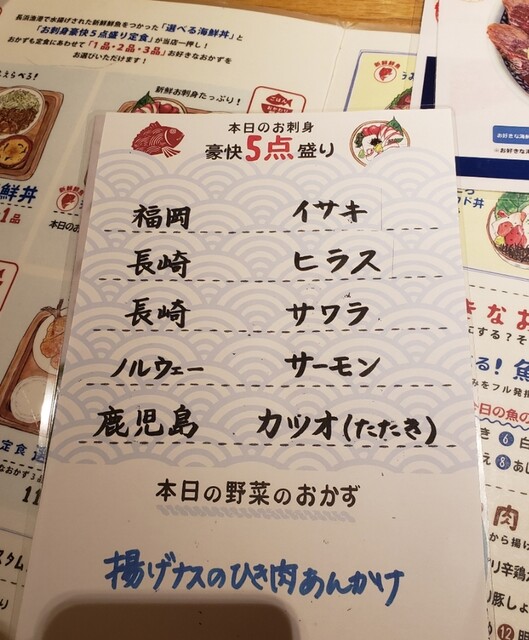 長浜漁港で水揚げされた新鮮鮮魚をつかった「選べる海鮮丼」と
「お刺身豪快5点盛り定食」が当店一押し!
おかずも定食にあわせて「1品・2品・3品」お好きなおかずを
お選びいただけます!
えらべる!
新鮮お刺身たっぷり!
ごはん
鮮丼
1品
本日のお
定食
本日のお刺身
豪快5点盛り
福岡 イサキ
長崎 ヒラス
長崎 サワラ
ノルウェー サーモン
鹿児島 カツオ(たたき)
本日の野菜のおかず
揚げナスのひき肉あんかけ
お好きな海鮮
※お好きな
丼
きなお
にする?そ
る!魚
みをフル発揮
今日の魚の
き 6 白
え 8 あじ
肉
から揚げ
リ辛鶏か
り豚しょ
12